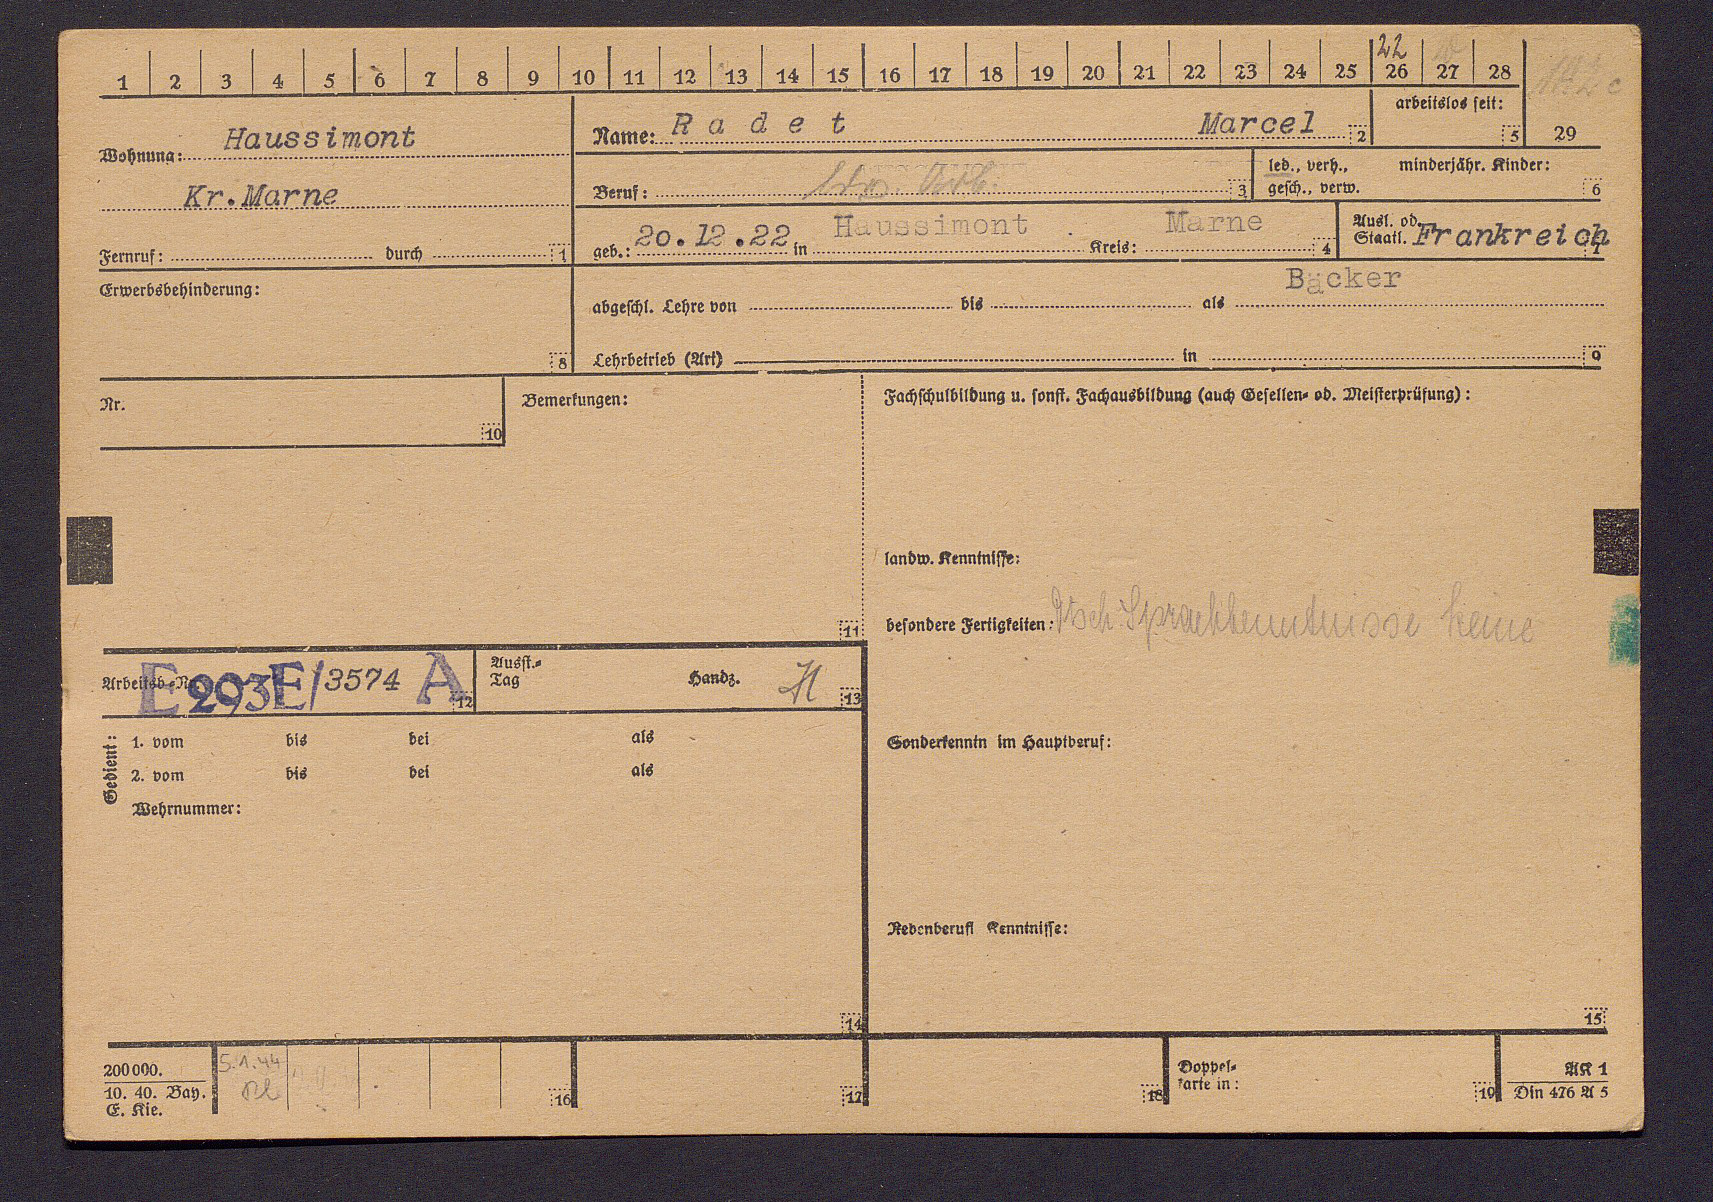 22
1 2 3 4 5 6 7 8 9 10 11 12 13 14 15 16 17 18 19 20 21 22 23 24 25 26 27 28
Wohnung: Haussimont
Kr.Marne
Fernruf: durch 1
Name: Radet Marcel 2
arbeitslos seit: 5
29
Beruf: 3
led., verh., gesch., verw.
minderjähr. Kinder: 6
geb.: 20.12.22 in Haussimont Kreis: Marne 4
Ausl. od. Staatl. Frankreich 7
Erwerbsbehinderung: 8
abgeschl. Lehre von bis als Bäcker
Lehrbetrieb (Art) in 9
Nr. 10
Bemerkungen: 11
Fachschulbildung u. sonst. Fachausbildung (auch Gesellen- od. Meisterprüfung):
landw. Kenntnisse:
besondere Fertigkeiten: Dtsch Sprachkenntnisse keine
Arbeitsb.-Nr. E 293E/3574 A 12
Ausst.-Tag Handz. H 13
Gedient:
1. vom bis bei als
2. vom bis bei als
Wehrnummer:
Sonderkenntn im Hauptberuf:
Nebenberufl Kenntnisse:
14
15
200000.
10. 40. Bay.
E. Kie.
5.1.44
16
17
18
Doppel-
karte in: 19
AK 1
Din 476 A 5